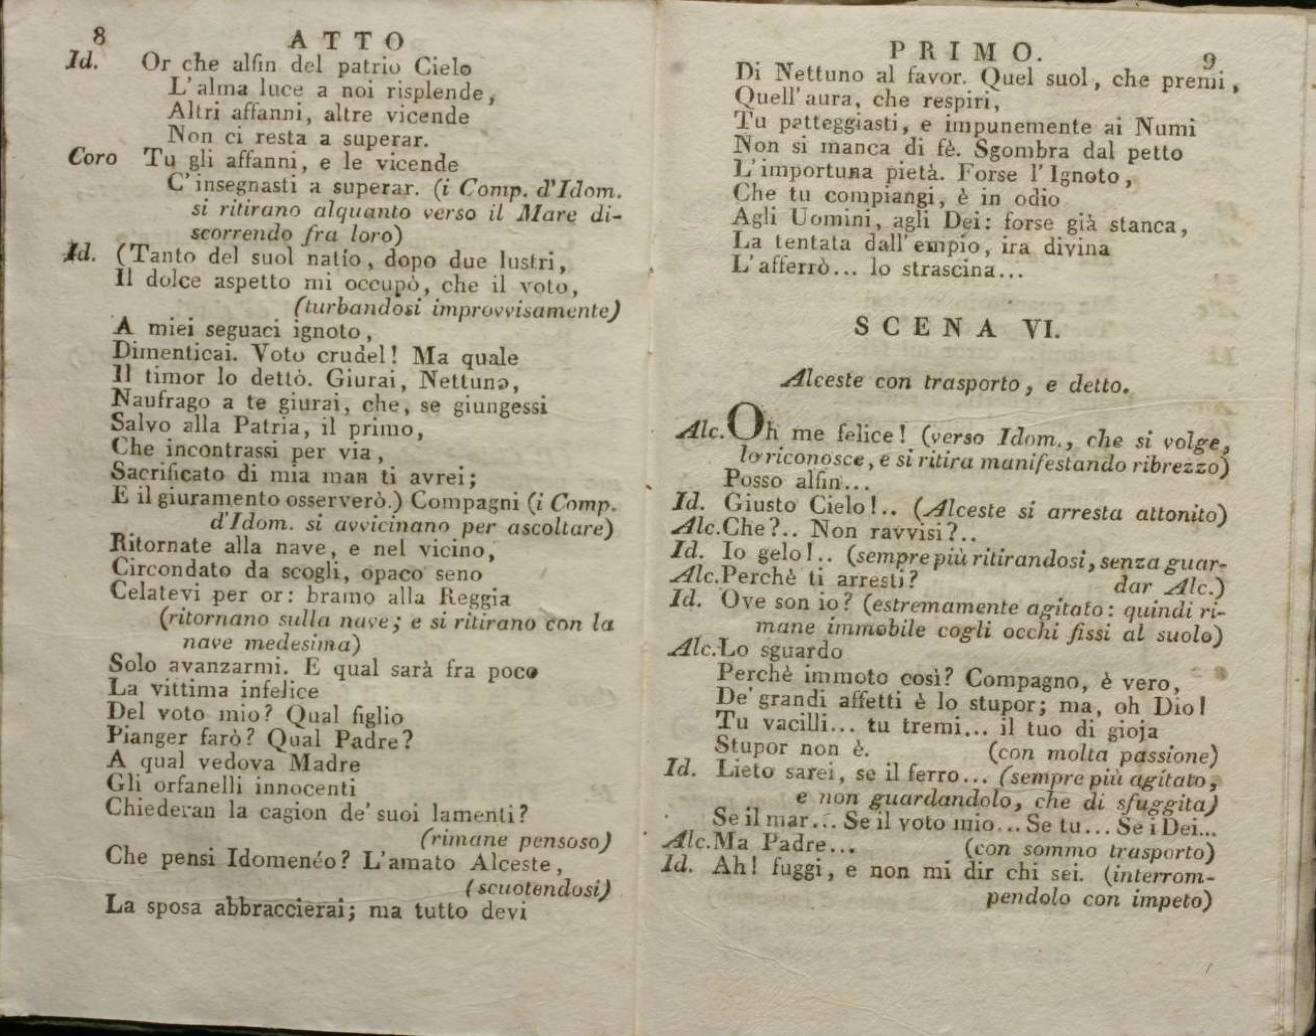 8
ATTO
Id. Or che alfin del patrio Cielo
L'alma luce a noi risplende,
Altri affanni, altre vicende
Non ci resta a superar.
Coro Tu gli affanni, e le vicende
C'insegnasti a superar. (i Comp. d'Idom.
si ritirano alquanto verso il Mare di-
scorrendo fra loro)
Id. (Tanto del suol natío, dopo due lustri,
Il dolce aspetto mi occupò, che il voto,
(turbandosi improvvisamente)
A miei seguaci ignoto,
Dimenticai. Voto crudel! Ma quale
Il timor lo dettò. Giurai, Nettuno,
Naufrago a te giurai, che, se giungessi
Salvo alla Patria, il primo,
Che incontrassi per via,
Sacrificato di mia man ti avrei;
E il giuramento osserverò.) Compagni (i Comp.
d'Idom. si avvicinano per ascoltare)
Ritornate alla nave, e nel vicino,
Circondato da scogli, opaco seno
Celatevi per or: bramo alla Reggia
(ritornano sulla nave; e si ritirano con la
nave medesima)
Solo avanzarmi. E qual sarà fra poco
La vittima infelice
Del voto mio? Qual figlio
Pianger farò? Qual Padre?
A qual vedova Madre
Gli orfanelli innocenti
Chiederan la cagion de' suoi lamenti?
(rimane pensoso)
Che pensi Idomenéo? L'amato Alceste,
(scuotendosi)
La sposa abbraccierai; ma tutto devi
PRIMO.
9
Di Nettuno al favor. Quel suol, che premi,
Quell'aura, che respiri,
Tu patteggiasti, e impunemente ai Numi
Non si manca di fè. Sgombra dal petto
L'importuna pietà. Forse l'Ignoto,
Che tu compiangi, è in odio
Agli Uomini, agli Dei: forse già stanca,
La tentata dall'empio, ira divina
L'afferrò... lo strascina...
SCENA VI.
Alceste con trasporto, e detto.
Alc. Oh me felice! (verso Idom., che si volge,
lo riconosce, e si ritira manifestando ribrezzo)
Posso alfin...
Id. Giusto Cielo!.. (Alceste si arresta attonito)
Alc. Che?.. Non ravvisi?..
Id. Io gelo!.. (sempre più ritirandosi, senza guar-
Alc. Perchè ti arresti? dar Alc.)
Id. Ove son io? (estremamente agitato: quindi ri-
mane immobile cogli occhi fissi al suolo)
Alc. Lo sguardo
Perchè immoto così? Compagno, è vero,
De' grandi affetti è lo stupor; ma, oh Dio!
Tu vacilli... tu tremi... il tuo di gioja
Stupor non è. (con molta passione)
Id. Lieto sarei, se il ferro... (sempre più agitato,
e non guardandolo, che di sfuggita)
Se il mar... Se il voto mio... Se tu... Se i Dei...
Alc. Ma Padre... (con sommo trasporto)
Id. Ah! fuggi, e non mi dir chi sei. (interrom-
pendolo con impeto)